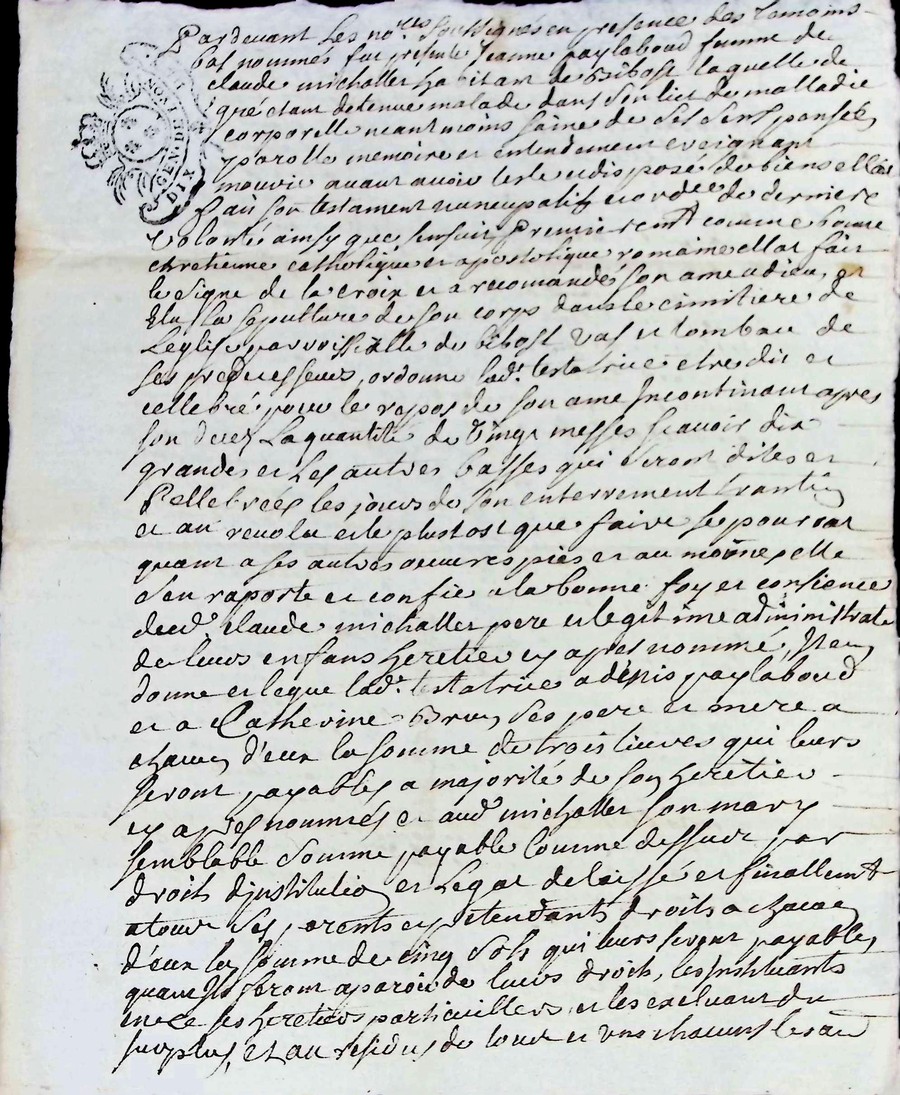 Pardevant les no.res soussignés en presence des temoins
bas nommés fut presente Jeanne paylaboud femme de
claude michallet habitant de Bibost laquelle de
gré etant detenue malade dans son lict de malladie
corporelle neantmoins saine de ses sens pensée
parolle memoire et entendement creignant
mourir avant avoir testé et disposé de biens ellea
fait son testament nuncupatif et ordre de derniere
Volonté ainsy que sensuit Premierem.t comme bonne
chretienne catholique et apostolique romaine ellat fait
le signe de la croix et a recomandé son ame a dieu, et
Elu la sepulture de son corps dans le cimitiere de
Leglise parroissialle de Bibost Vas et tombau de
ses predecesseurs, ordonne lad. testatrice etre dit et
cellebré pour le repos de son ame Incontinant apres
son deces La quantité de Vingt messes scavoir dix
grandes et Les autres basses qui seront dites et
Cellebrées les jours de son enterrement trantin
et au revolu et le plustost que faire se pourrat
quant a ses autres oeuvres pies et aumoines elle
s'en raporte et confie a la bonne foy et consience
dud. claude michallet pere et legitime administrate
de leurs enfans heretier cy apres nommé, Item
donne et legue lad. testatrice a denis paylaboud
et a Catherine Brun ses pere et mere a
chacun d'eux la somme de trois livres qui leurs
seront payables a majorité de son heretier
cy apres nommés et aud. michallet son mary
semblable somme payable comme dessus par
droit d'institution et Legat delaissé et finallem.t
a tous ses parents et pretendants droits a chacun
d'eux la somme de cinq sols qui leurs seront payables
quand Ils feront aparoir de leurs droits, les Instituants
en ce ses heretiers particuilliers et les excluant du
surplus, et au residus de tous et uns chacuns